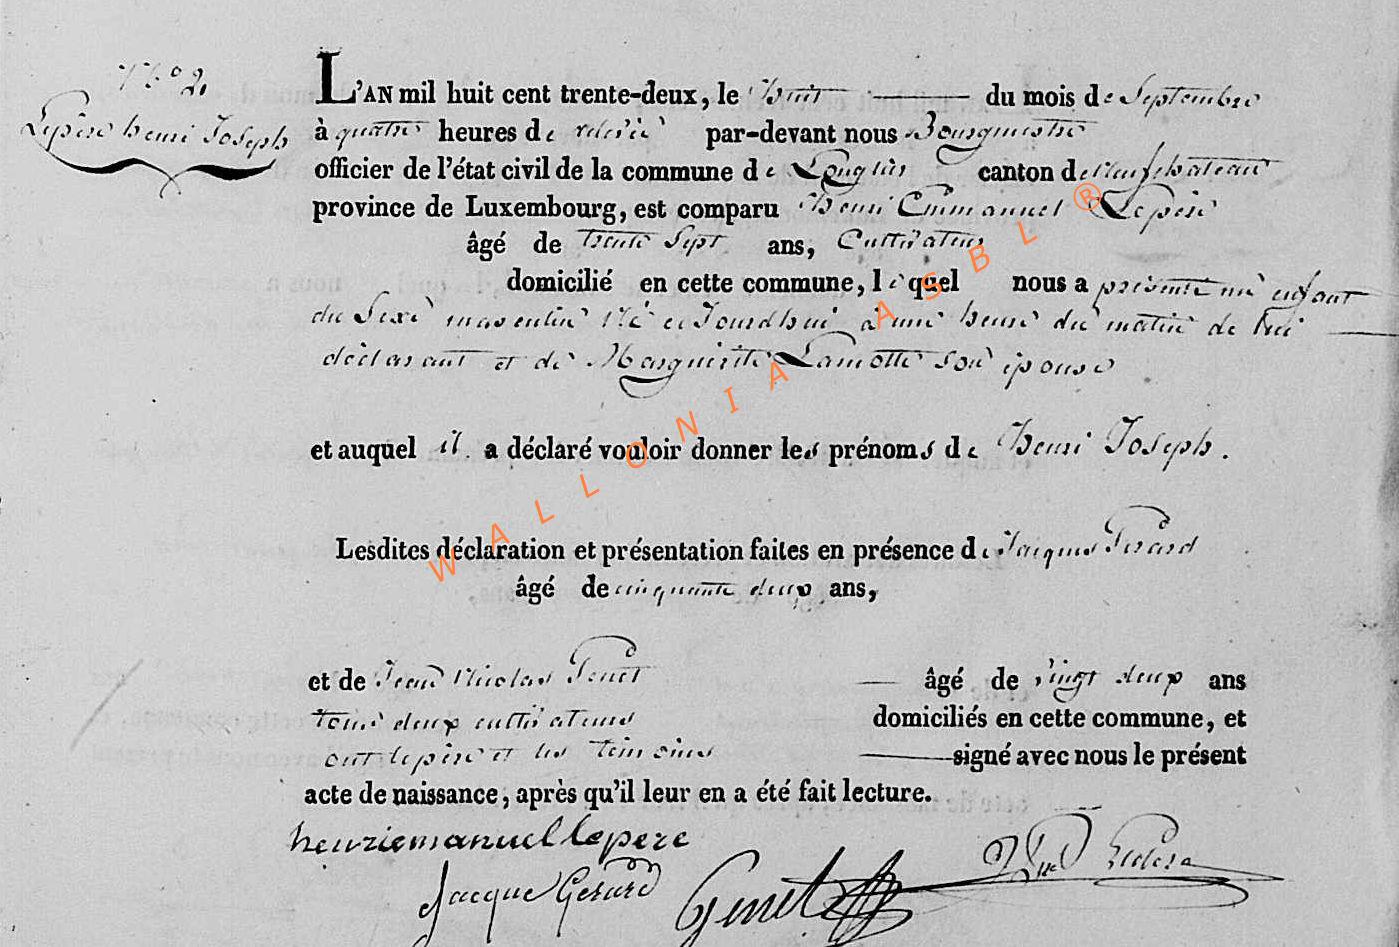 N.° 2.
Lepère henri Joseph
L'AN mil huit cent trente-deux, le huit du mois de Septembre
à quatre heures de relevée par-devant nous Bourguestre
officier de l'état civil de la commune de Longlier canton de Neufchateau
province de Luxembourg, est comparu Henri Emmanuel Lepère
âgé de trente Sept ans, Cultivateur
domicilié en cette commune, lequel nous a présenté un enfant
du Sexe masculin Né ce Jourdhui à une heure du matin de lui
déclarant et de Marguerite Lamotte son épouse
et auquel il a déclaré vouloir donner les prénoms de Henri Joseph.
Lesdites déclaration et présentation faites en présence de Jacques Gerard
âgé de cinquante deux ans,
et de Jean Nicolas Genet âgé de vingt deux ans
tous deux cultivateurs domiciliés en cette commune, et
ont le père et les témoins signé avec nous le présent
acte de naissance, après qu'il leur en a été fait lecture.
henriemanuel lepere
Jacque Gerard
Genet
WALLONIA ASBL ®